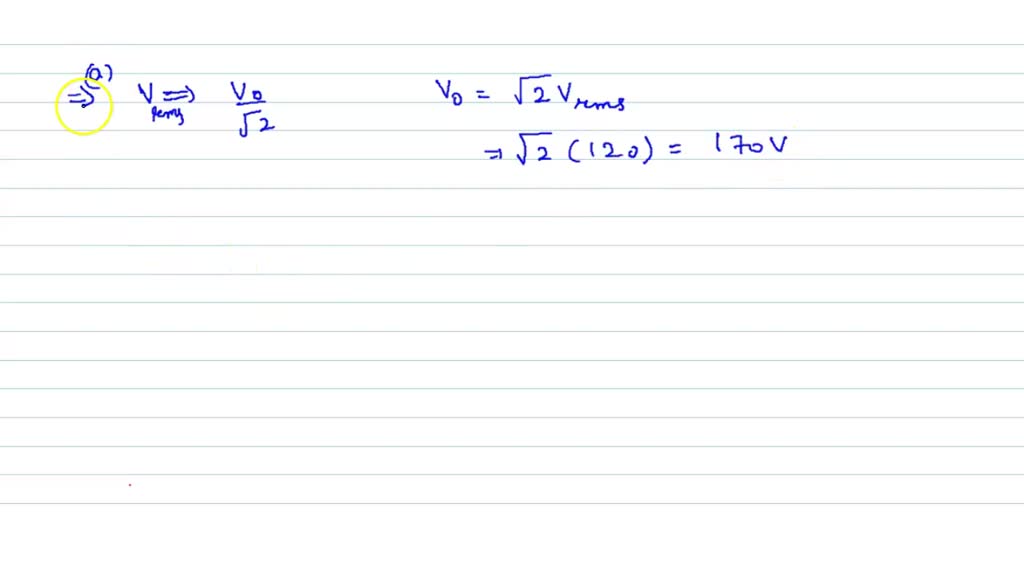 (a)
⇒ V rms ⇒ V0/√2 V0 = √2 Vrms
⇒ √2 (120) = 170V